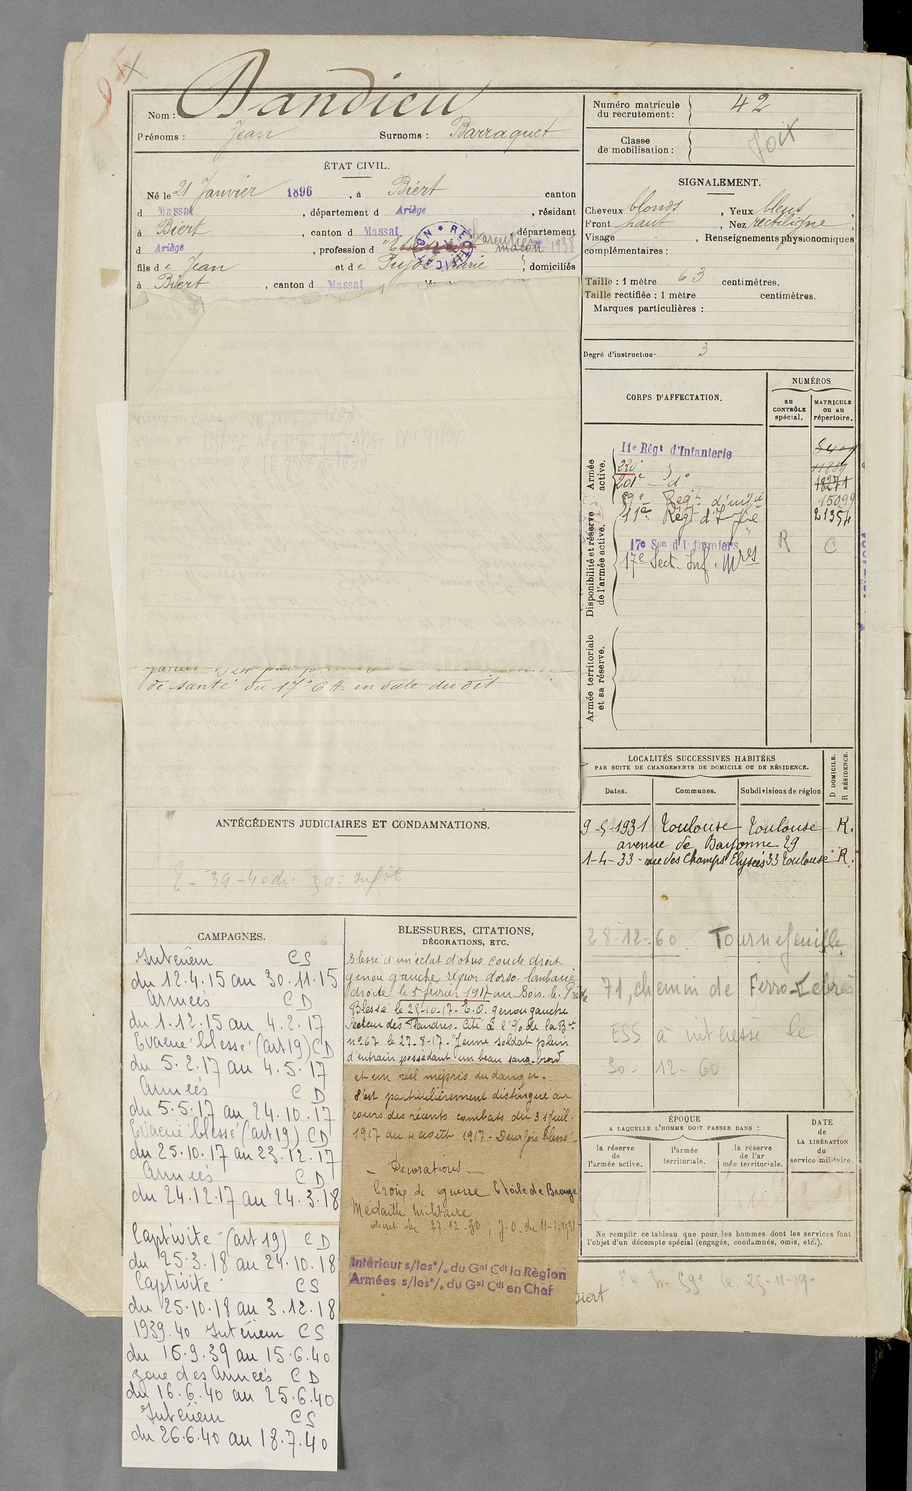 Nom : Dandieu
Prénoms : Jean Surnoms : Barraquet
ÉTAT CIVIL.
Né le 21 Janvier 1896, à Biert canton
d Massat, département d Ariège, résidant
à Biert, canton d Massat, département
d Ariège, profession d maçon 1938
fils de Jean et de Pujol Marie, domiciliés
à Biert, canton d Massat
de santé du 17e C.A. en date du dit
ANTÉCÉDENTS JUDICIAIRES ET CONDAMNATIONS.
CAMPAGNES.
Intérieur CS
du 12.4.15 au 30.11.15
Armées CD
du 1.12.15 au 4.2.17
Evacué blessé (art 19) CD
du 5.2.17 au 4.5.17
Armées CD
du 5.5.17 au 24.10.17
Evacué blessé (art 19) CD
du 25.10.17 au 23.12.17
Armées CD
du 24.12.17 au 24.3.18
Captivité (art 19) CD
du 25.3.18 au 24.10.18
Captivité CS
du 25.10.18 au 3.12.18
1939.40 Intérieur CS
du 16.9.39 au 15.6.40
zone des Armées CD
du 16.6.40 au 25.6.40
Intérieur CS
du 26.6.40 au 18.7.40
BLESSURES, CITATIONS,
DÉCORATIONS, ETC.
Blessé d'un éclat d'obus coude droit
genou gauche, région dorso lombaire
droite le 5 février 1917 au Bois le Prêtre
Blessé le 25-10-17. E.O. genou gauche
secteur des Flandres. Cité à l'O/ de la Bde
n° 67 le 27-8-17. Jeune soldat plein
d'entrain possédant un beau sang-froid
et un réel mépris du danger.
S'est particulièrement distingué au
cours des récents combats du 31 juil.
1917 au 4 août 1917. Deux fois blessé.
Décorations
Croix de guerre Etoile de Bronze
Médaille Militaire
décret du 27.12.30, J.O. du 11-1-1931
Intérieur s/les o/. du Gal Cdt la Région
Armées s/les o/. du Gal Cdt en Chef
Biert
Numéro matricule
du recrutement : 42
Classe
de mobilisation :
SIGNALEMENT.
Cheveux blonds, Yeux bleus
Front haut, Nez rectiligne,
Visage, Renseignements physionomiques
complémentaires :
Taille : 1 mètre 63 centimètres.
Taille rectifiée : 1 mètre centimètres.
Marques particulières :
Degré d'instruction 3
CORPS D'AFFECTATION.
NUMÉROS
au
CONTRÔLE
spécial.
MATRICULE
ou au
répertoire.
Armée
active.
11e Régt d'Infanterie
220e
201e do 18271
59e Régt d'infie 15099
11e Régt d'Infie 21354
Disponibilité et réserve
de l'armée active.
17e Son d'Infirmiers R C
17e Sect. Inf. Mres
Armée territoriale
et sa réserve.
LOCALITÉS SUCCESSIVES HABITÉES
PAR SUITE DE CHANGEMENTS DE DOMICILE OU DE RÉSIDENCE.
Dates. Communes. Subdivisions de région
D DOMICILE.
R RÉSIDENCE.
9-5-1931 Toulouse Toulouse R.
avenue de Bayonne 29
1-4-33 - rue des Champs Elysées 33 Toulouse R.
28-12-60. Tournefeuille
71, chemin de Ferro-Lebrès
ESS a intéressé le
30-12-60
ÉPOQUE
A LAQUELLE L'HOMME DOIT PASSER DANS :
la réserve
de
l'armée active.
l'armée
territoriale.
la réserve
de l'ar
mée territoriale.
DATE
de
LA LIBÉRATION
du
service militaire.
Ne remplir ce tableau que pour les hommes dont les services font
l'objet d'un décompte spécial (engagés, condamnés, omis, etc.).